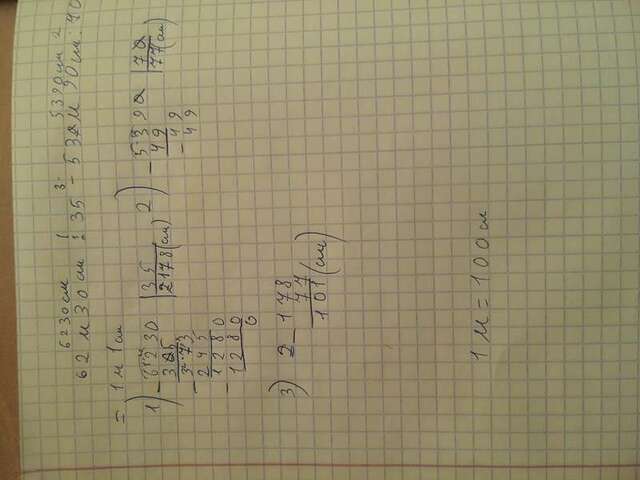 6230см 1 3 5390см 2
62 м 30 см : 35 - 53 м 90 см : 70
= 1 м 1 см
1) - 6230 | 35 2) - 5390 | 70
178 (см) 49 77 (см)
- 49
49
- 280
280
0
3) - 178
77
101 (см)
1 м = 100 см